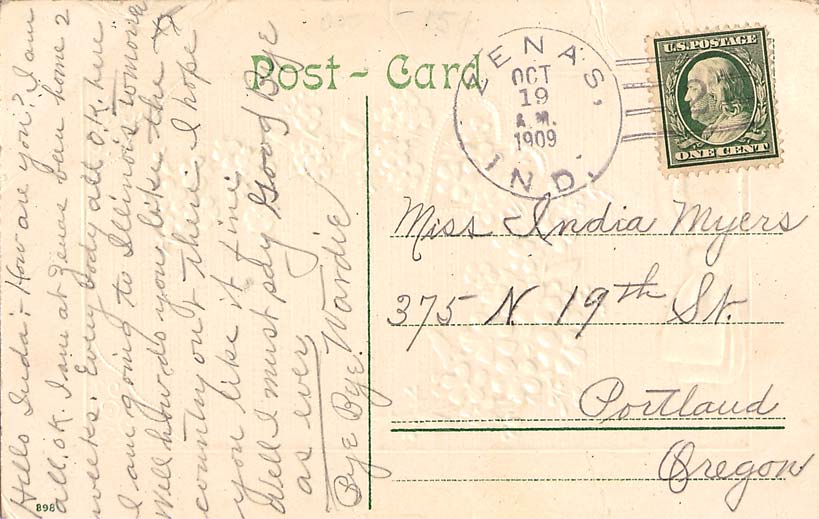 Post-Card
ZENAS,
OCT
19
A.M.
1909
IND.
U.S. POSTAGE
ONE CENT
Miss India Myers
375 N. 19th St.
Portland
Oregon
Hello Inda:- How are you? I am
all. ok. I am at Zenas been home 2
weeks. Every body all O.K. here
I am going to Illinois tomorrow
Well how do you like the
country out there. I hope
you like it fine
Well I must say Good Bye
as ever
Bye Bye. Wardie
898